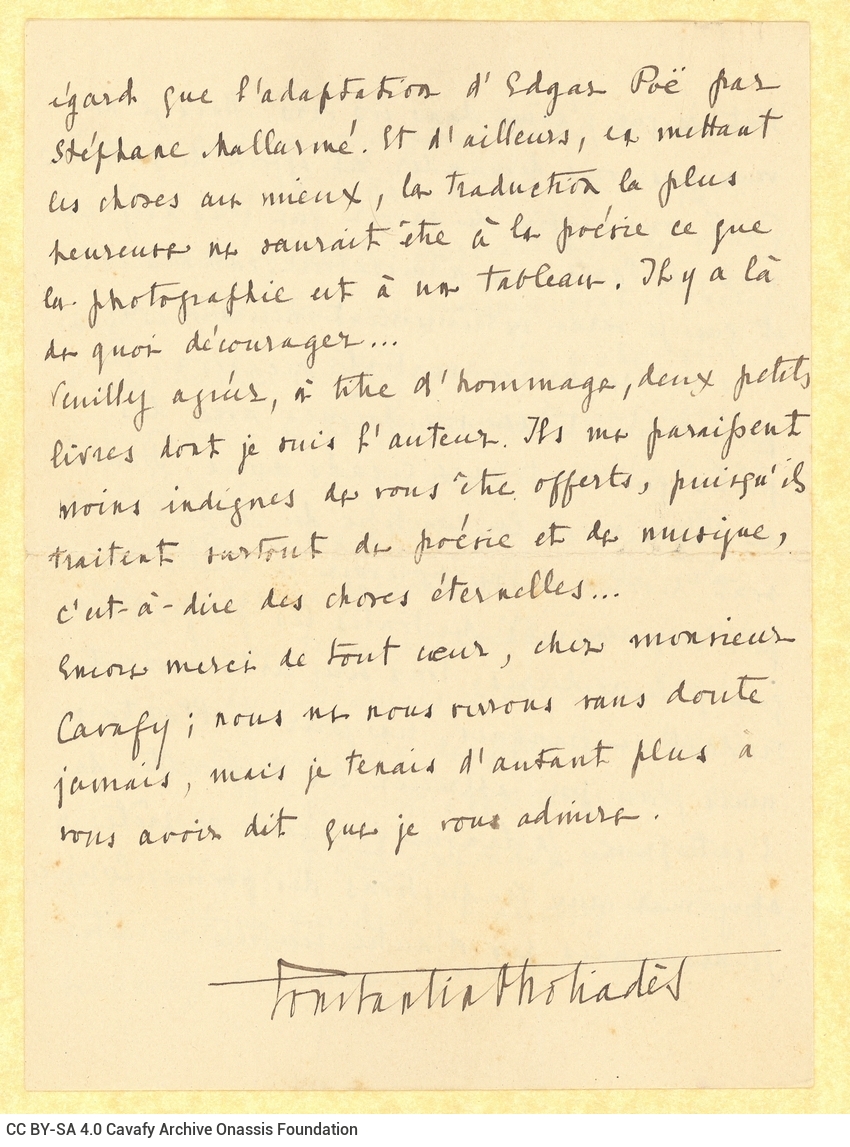 égard que l'adaptation d'Edgar Poë par
Stéphane Mallarmé. Et d'ailleurs, en mettant
les choses au mieux, la traduction la plus
heureuse ne saurait être à la poésie ce que
la photographie est à un tableau. Il y a là
de quoi décourager...
Veuillez agréer, à titre d'hommage, deux petits
livres dont je suis l'auteur. Ils me paraissent
moins indignes de vous être offerts, puisqu'ils
traitent surtout de poésie et de musique,
c'est-à-dire des choses éternelles...
Encore merci de tout cœur, cher monsieur
Cavafy ; nous ne nous verrons sans doute
jamais, mais je tenais d'autant plus à
vous avoir dit que je vous admire.
Constantin Photiadès
CC BY-SA 4.0 Cavafy Archive Onassis Foundation